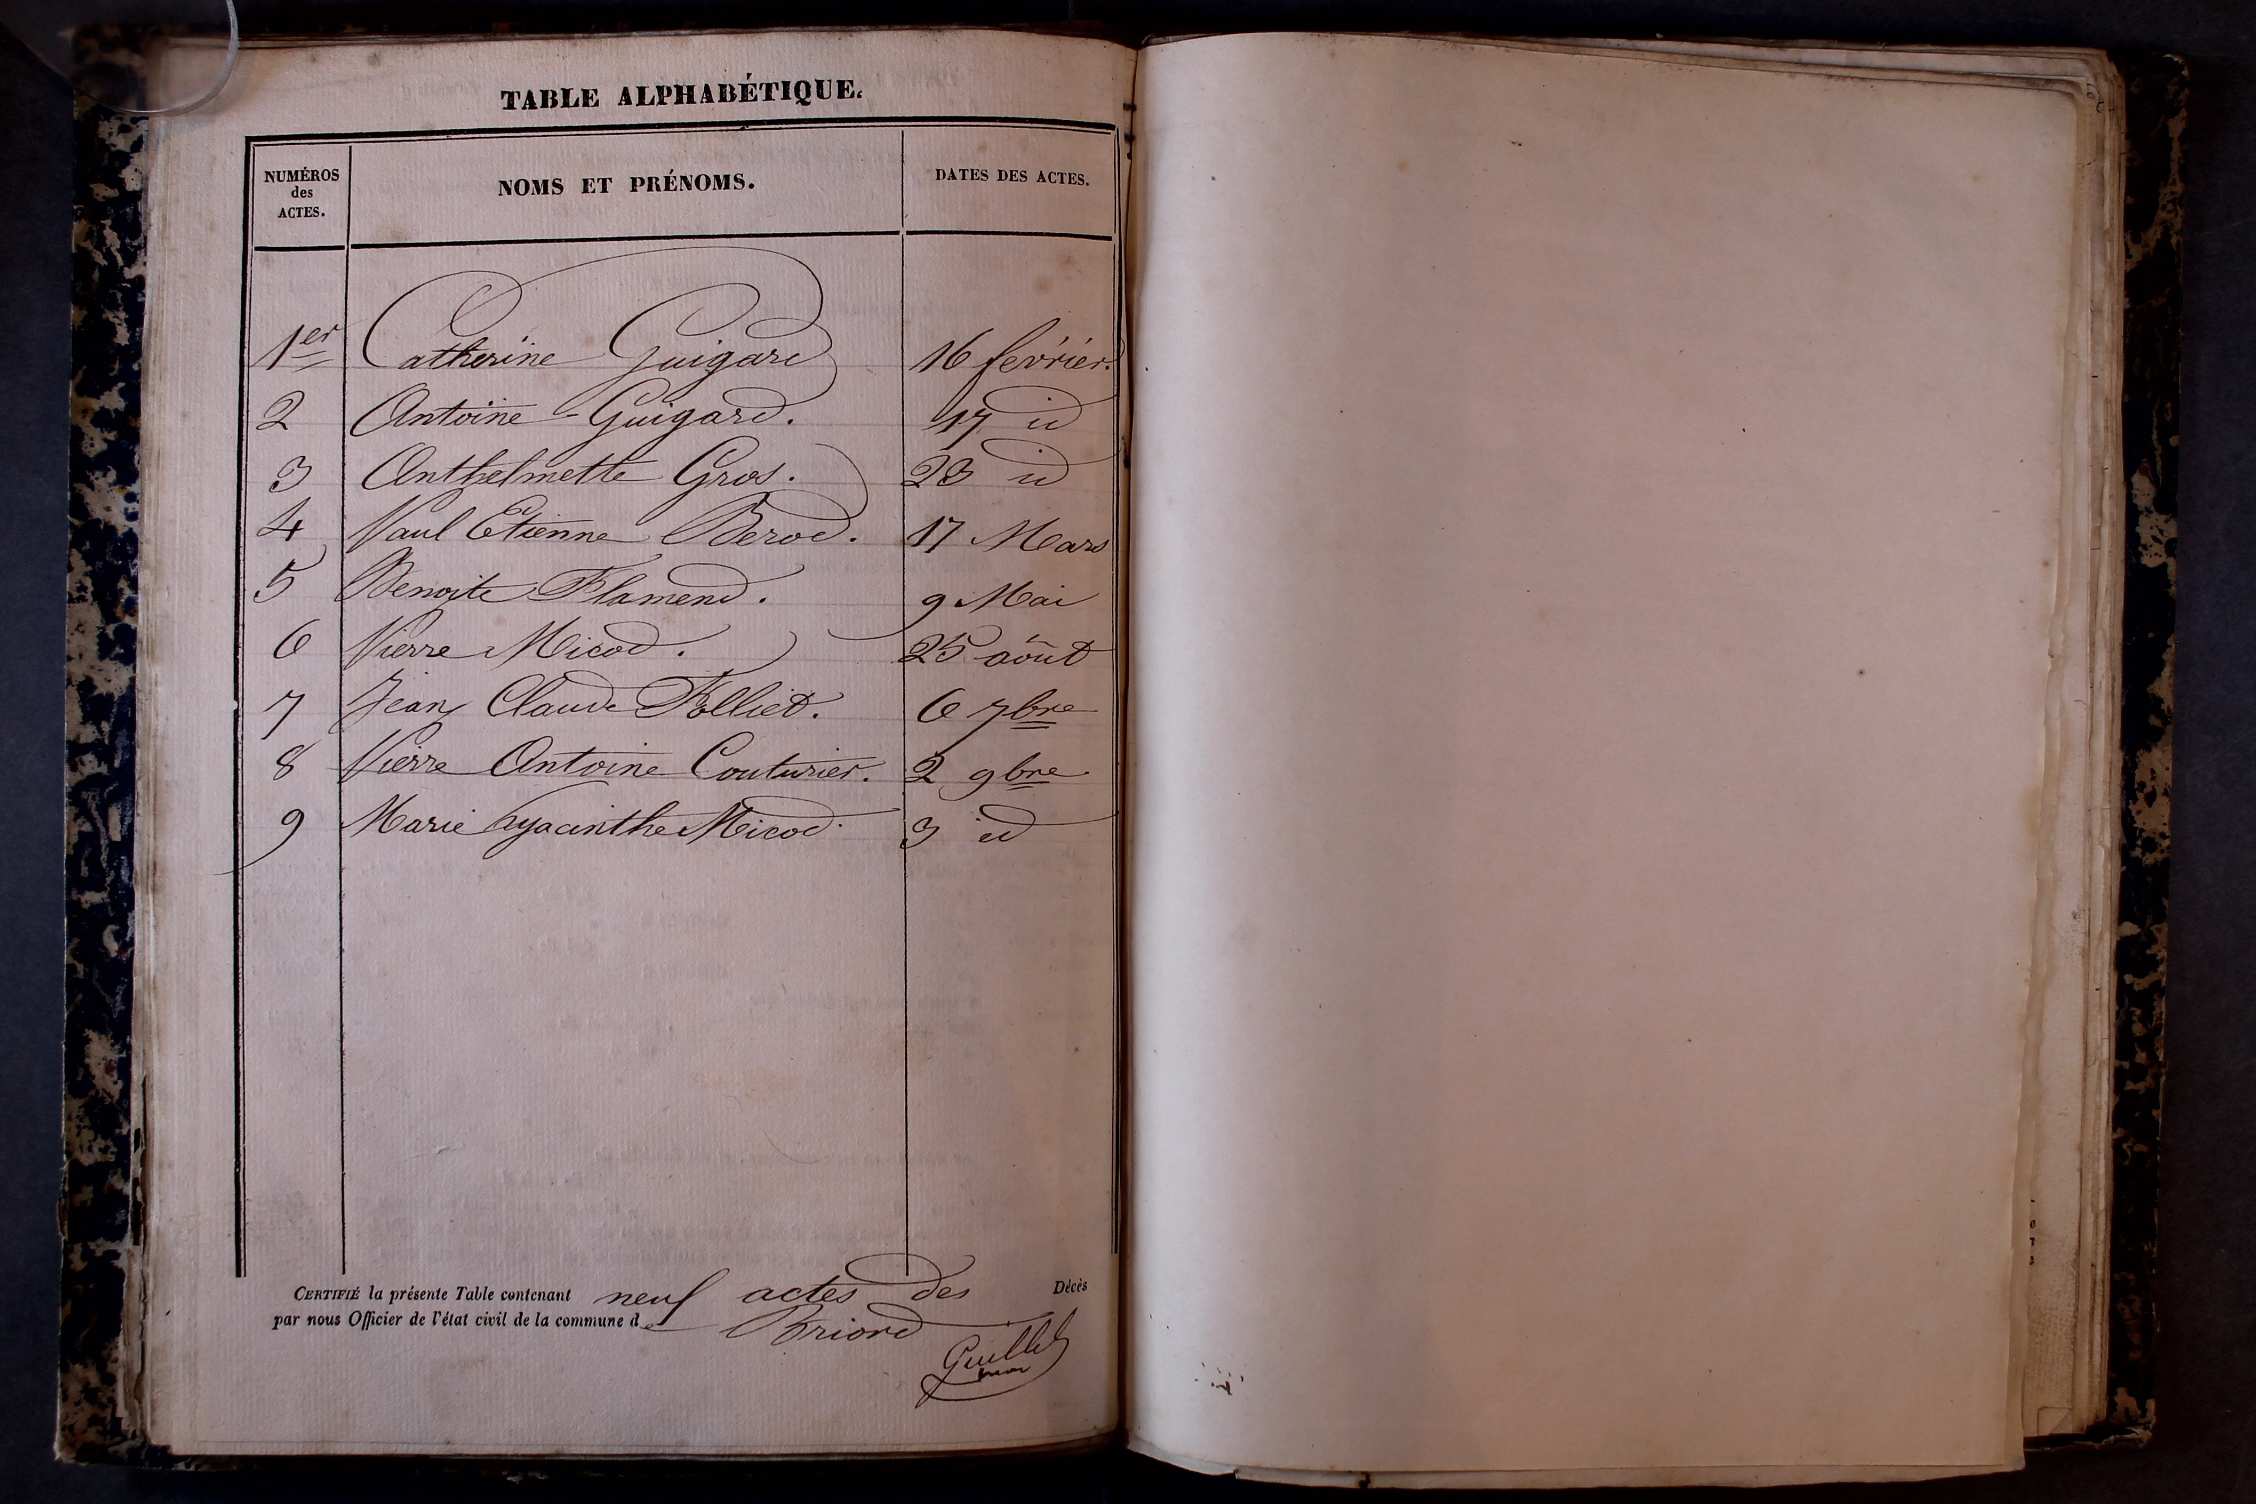 TABLE ALPHABÉTIQUE.
NUMÉROS des ACTES. NOMS ET PRÉNOMS. DATES DES ACTES.
1er Catherine Guigard 16 février.
2 Antoine Guigard. 17 id
3 Anthelmette Gros. 23 id
4 Paul Etienne Berod. 17 Mars
5 Benoite Flamend. 9 Mai
6 Pierre Micod. 25 août
7 Jean Claude Folliet. 6 7bre
8 Pierre Antoine Couturier. 2 9bre
9 Marie hyacinthe Micod. 3 id
CERTIFIÉ la présente Table contenant neuf actes des Décès
par nous Officier de l'état civil de la commune de Briord